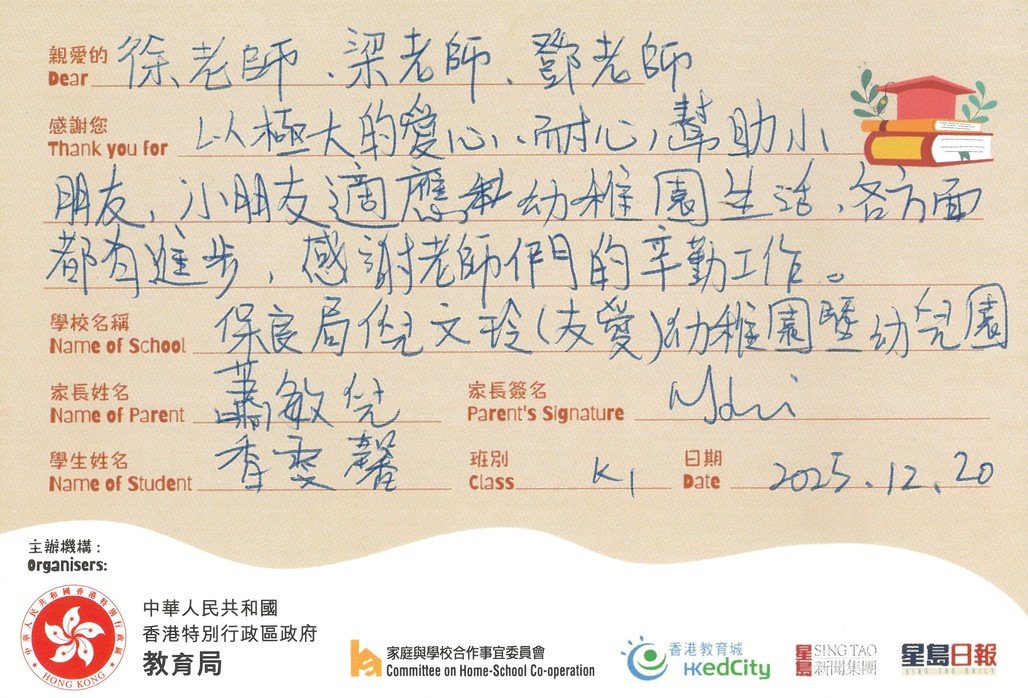 親愛的 徐老師、梁老師、鄧老師
Dear
感謝您 以極大的愛心、耐心,幫助小
Thank you for
朋友,小朋友適應幼稚園生活,各方面
都有進步,感謝老師們的辛勤工作。
學校名稱 保良局倪文玲(友愛)幼稚園暨幼兒園
Name of School
家長姓名 蕭敏兒 家長簽名
Name of Parent Parent's Signature
學生姓名 香雯馨 班別 K1 日期 2025.12.20
Name of Student Class Date
主辦機構:
Organisers:
中華人民共和國香港特別行政區
HONG KONG
中華人民共和國
香港特別行政區政府
教育局
家庭與學校合作事宜委員會
Committee on Home-School Co-operation
香港教育城
HKedCity
星島 SING TAO
新聞集團
星島日報
SING TAO DAILY